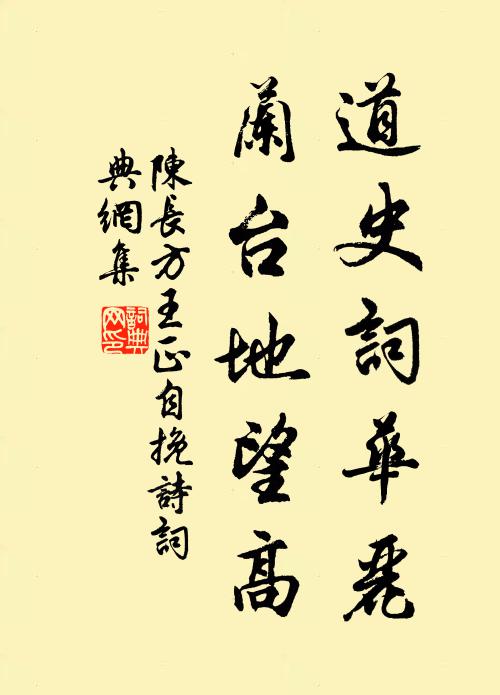 道史詞華麗
蘭台地望高
陳長方王正自挽詩詞
典網集
詞典
网印